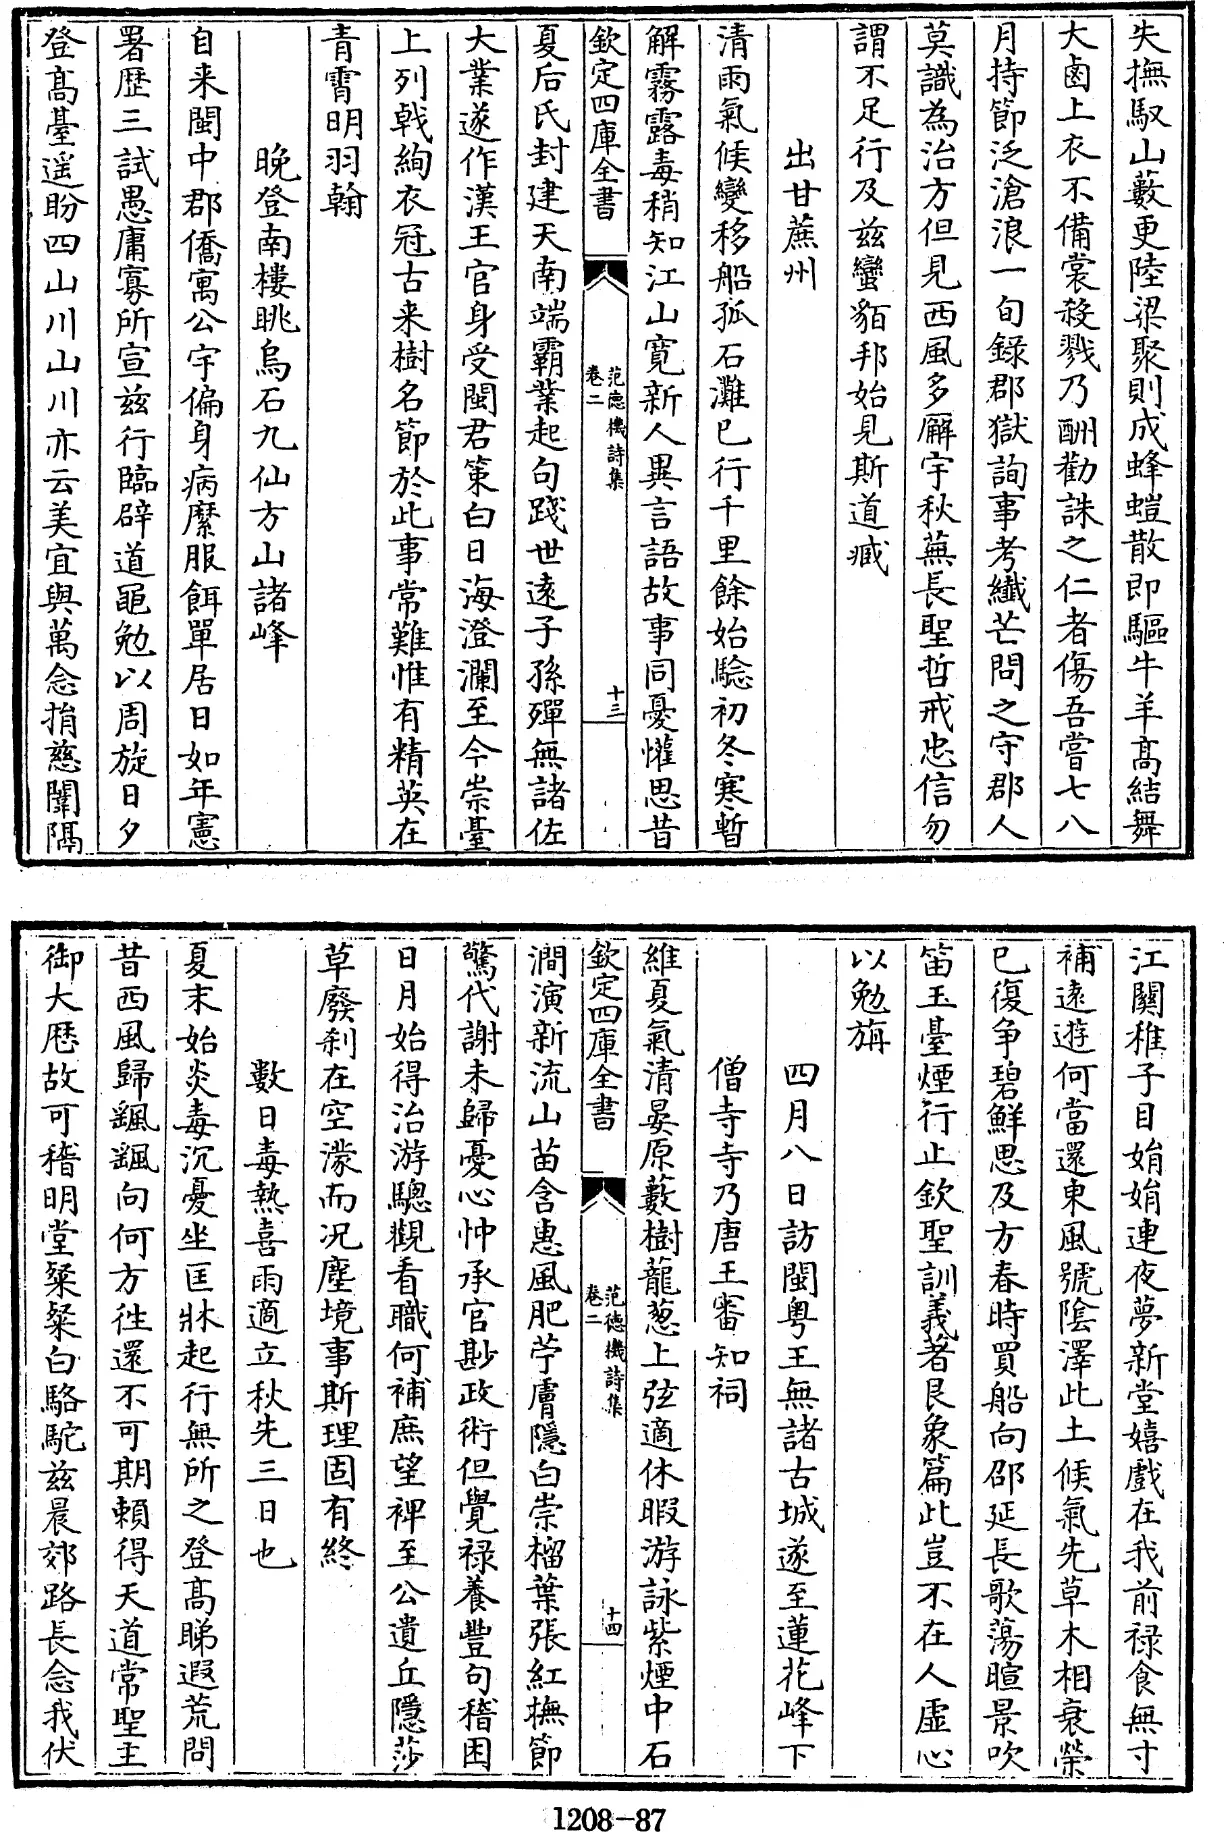 失撫馭山藪更陸梁聚則成蜂螘散即驅牛羊髙結舞
大鹵上衣不備裳殺戮乃酬勸誅之仁者傷吾嘗七八
月持節泛滄浪一旬録郡獄詢事考纎芒問之守郡人
莫識為治方但見西風多廨宇秋蕪長聖哲戒忠信勿
謂不足行及兹蠻貊邦始見斯道臧
出甘蔗州
清雨氣候變移船孤石灘已行千里餘始騐初冬寒暫
解霧露毒稍知江山寛新人異言語故事同憂懽思昔
欽定四庫全書
范德機詩集
卷二
十三
夏后氏封建天南端霸業起句踐世逺子孫殫無諸佐
大業遂作漢王官身受閩君策白日海澄瀾至今崇臺
上列㦸絢衣冠古来樹名節於此事常難惟有精英在
青霄明羽翰
晚登南樓眺烏石九仙方山諸峰
自来閩中郡僑寓公宇偏身病縻服餌單居日如年憲
署歴三試愚庸寡所宣兹行臨辟道黽勉以周旋日夕
登髙臺遥盼四山川山川亦云美宜與萬念捐慈闈隔
江關稚子目娟娟連夜夢新堂嬉戲在我前禄食無寸
補逺遊何當還東風號陰澤此土候氣先草木相衰榮
已復争碧鮮思及方春時買船向邵延長歌蕩暄景吹
笛玉臺煙行止欽聖訓義著艮象篇此豈不在人虚心
以勉旃
四月八日訪閩粤王無諸古城遂至蓮花峰下
僧寺寺乃唐王審知祠
維夏氣清晏原藪樹蘢葱上弦適休暇游詠紫煙中石
澗演新流山苗含惠風肥苧膚隱白崇榴葉張紅撫節
欽定四庫全書
范德機詩集
卷二
十四
驚代謝未歸憂心忡承官尠政術但覺禄養豐句稽困
日月始得治游驄觀看職何補庶望裨至公遺丘隱莎
草廢刹在空濛而况塵境事斯理固有終
數日毒熱喜雨適立秋先三日也
夏末始炎毒沉憂坐匡牀起行無所之登髙睇遐荒問
昔西風歸颯颯向何方徃還不可期頼得天道常聖主
御大厯故可稽明堂粲粲白駱駝兹晨郊路長念我伏
1208-87